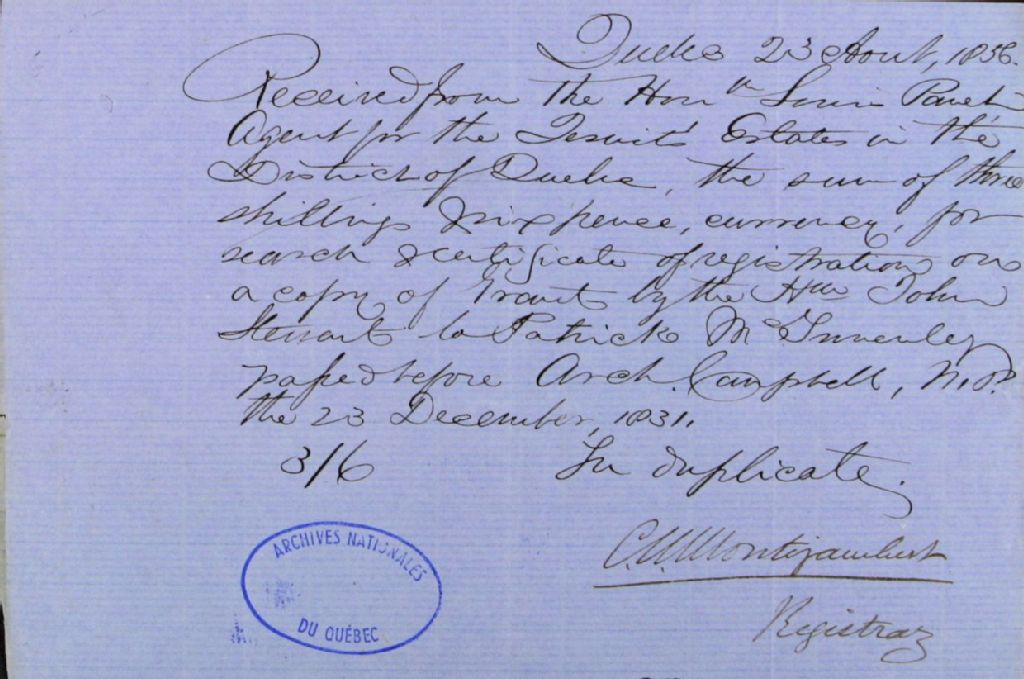 Quebec 23 Aout, 1856.
Received from the Honble Louis Panet
Agent for the Jesuits' Estates in the
District of Quebec, the sum of three
shillings & sixpence, currency, for
search & certificate of registration on
a copy of Grant by the Hon John
Stewart to Patrick
passed before Arch. Campbell, N.P.
the 23 December, 1831.
3/6 In duplicate.
Montizambert
Registrar
ARCHIVES NATIONALES
DU QUÉBEC